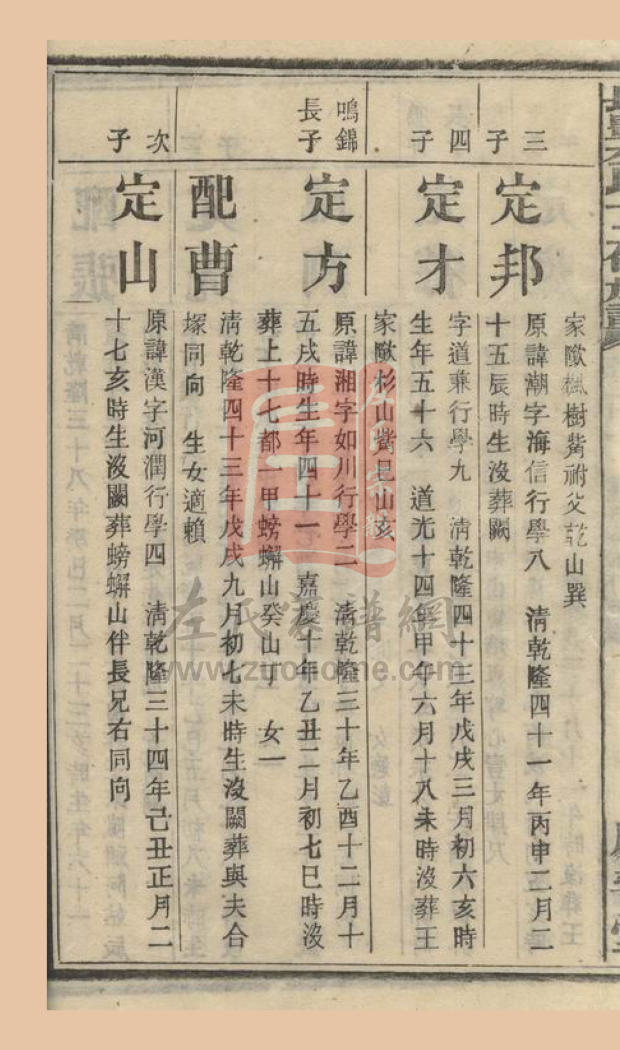 家歐楓樹觜祔父乾山巽
三子
定邦
原諱潮字海信行學八 清乾隆四十一年丙申二月二
十五辰時生沒葬闕
四子
定才
字道兼行學九 清乾隆四十三年戊戌三月初六亥時
生年五十六 道光十四年甲午六月十八未時沒葬王
家歐杉山觜巳山亥
鳴錦
長子
定方
原諱湘字如川行學二 清乾隆三十年乙酉十二月十
五戌時生年四十一 嘉慶十年乙丑二月初七巳時沒
葬上十七都一甲螃蠏山癸山丁 女一
配曹
清乾隆四十三年戊戌九月初七未時生沒闕葬與夫合
塚同向 生女適賴
次子
定山
原諱漢字河潤行學四 清乾隆三十四年己丑正月二
十七亥時生沒闕葬螃蠏山伴長兄右同向
左氏家譜網
www.zuohome.com